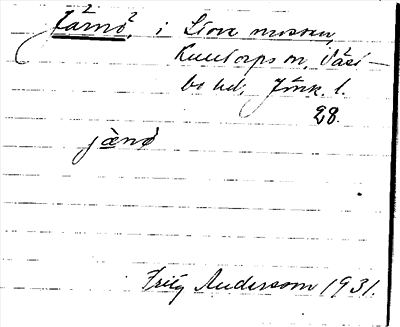 Järnö, i Stora mossen,
Kulltorps sn, Väst-
bo hd. Jönk. l.
28.
jànö
Fritz Andersson 1931.